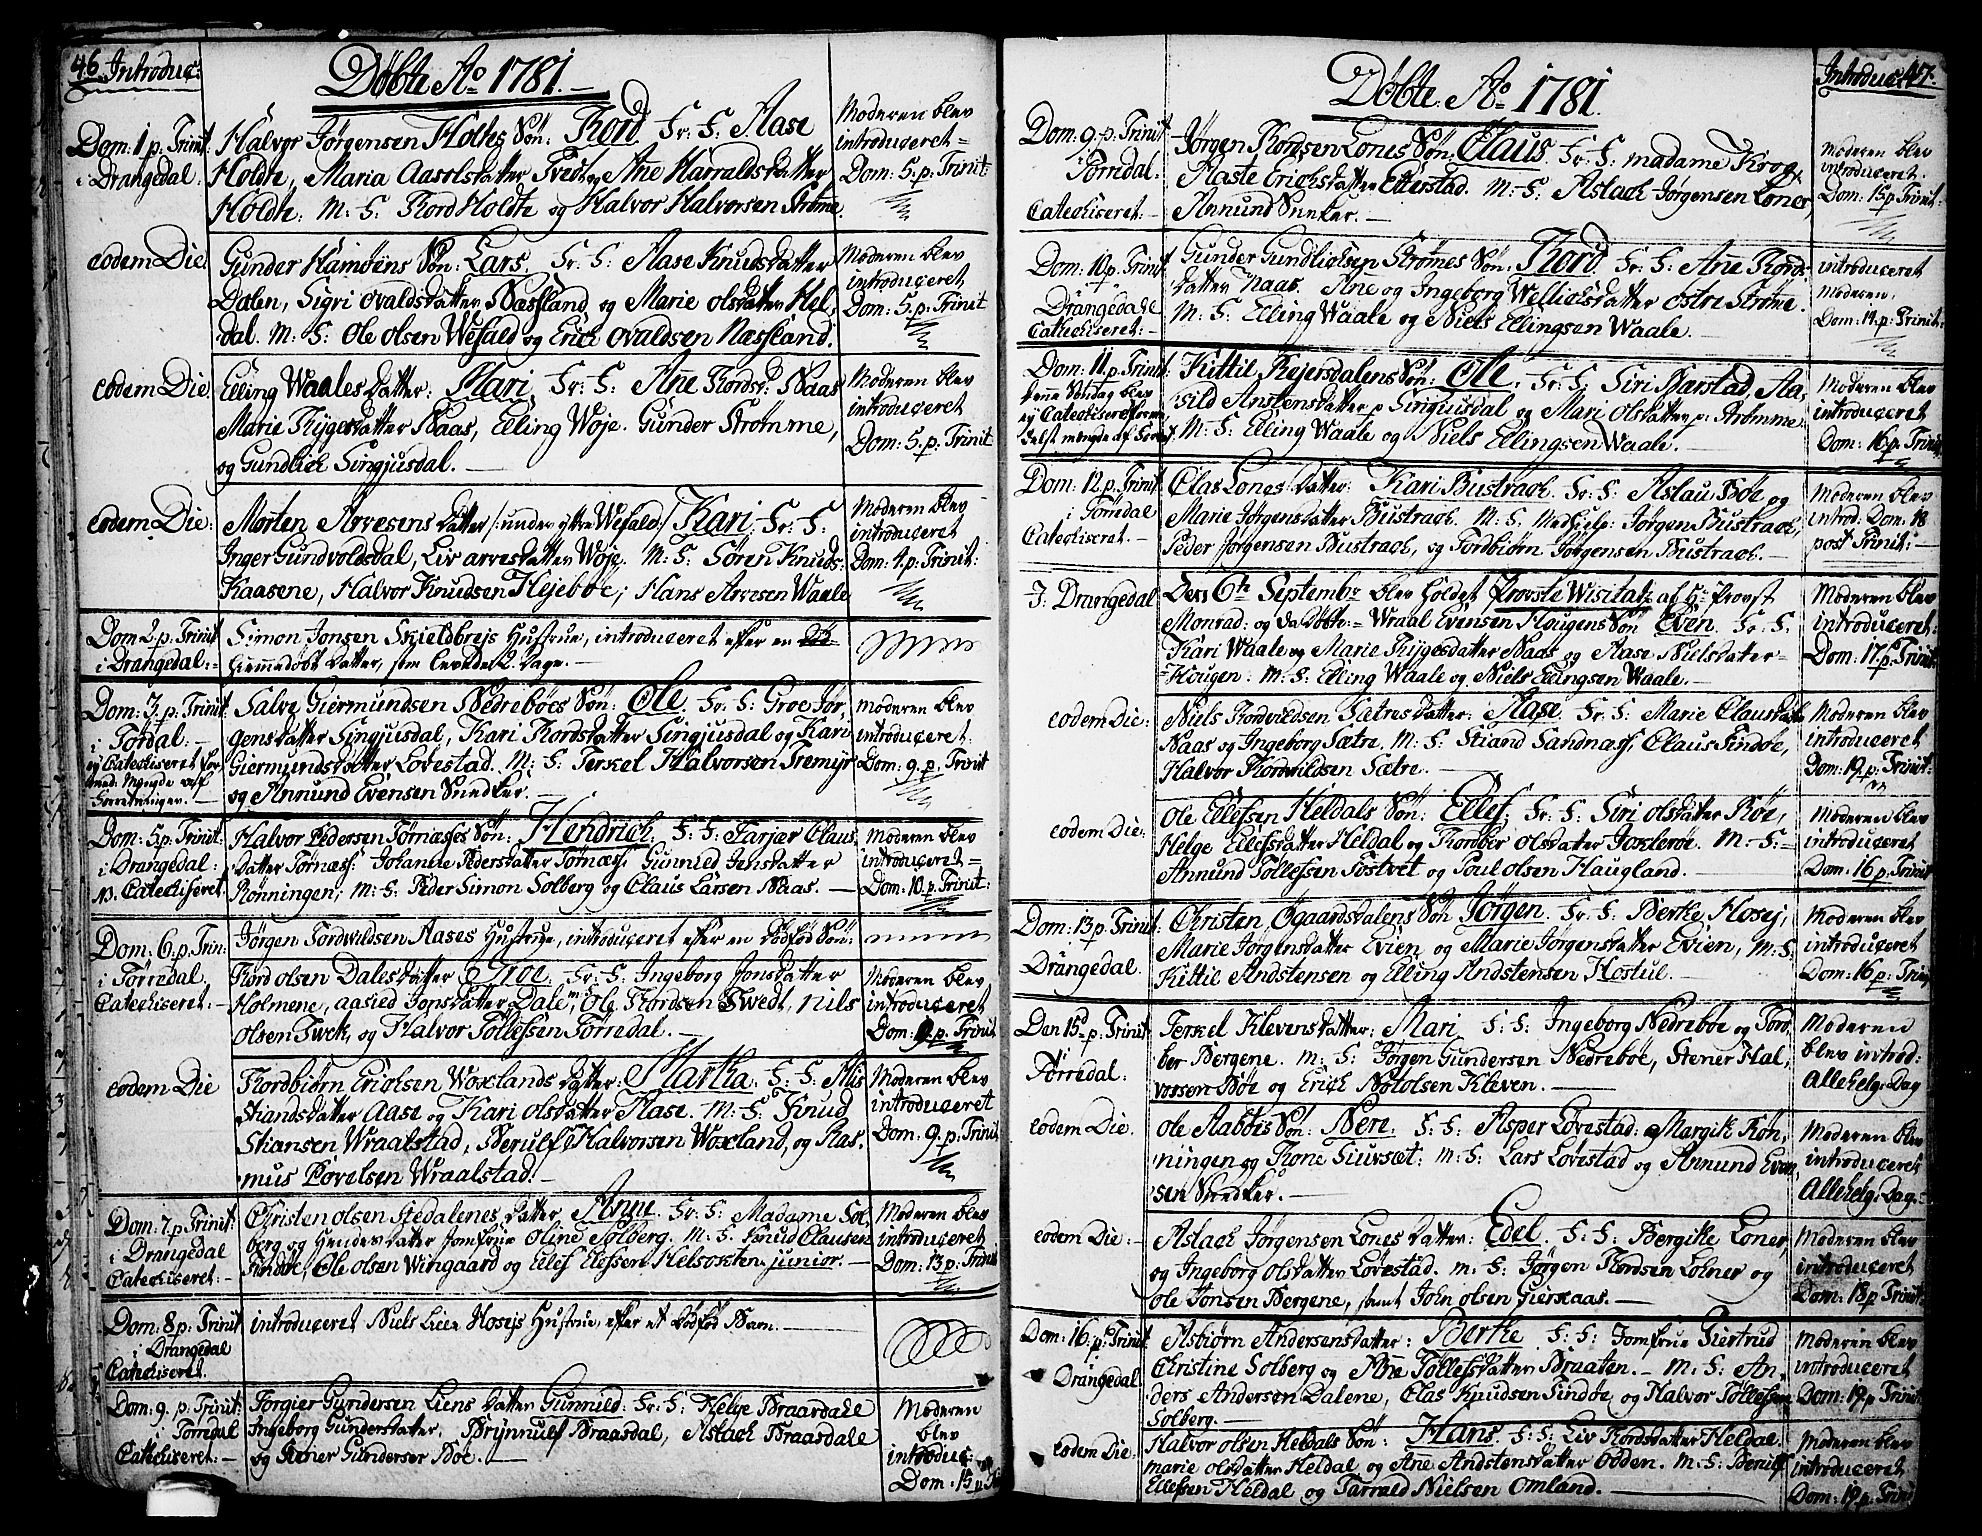 46. Introduc:
Døbte Ao 1781.
Dom: 1 p. Trinit
i Drangedal.
Halvor Jørgensen Holtes Søn: Tord. Fr: F: Aase
Holdte, Maria Aasolsdatter Tvedt og Ane Harraldsdatter
Holdte: M: F: Tord Holdte og Halvor Halvorsen Strøme.
Moderen blev
introduceret
Dom: 5. p: Trinit:
eodem Die:
Gunder Hamøens Søn: Lars. Fr: F: Aase Knudsdatter
Dalen, Sigri Ovaldsdatter Næssland og Marie olsdatter Hel,
dal. M: F: Ole olsen Wefald og Erich Ovaldsen Næssland.
Moderen blev
introduceret
Dom: 5. p: Trinit:
eodem Die
Elling Waales datter: Mari. Fr: F: Ane Tordsd: Naas
Marie Tygesdatter Naas, Elling Wøje. Gunder Strømme,
og Gundlich Singjusdal.
Moderen blev
introduceret
Dom: 5. p: Trinit
eodem Die:
Morten Arvesens datter /: under ytre Wefald:/ Kari. Fr: F:
Inger Gundvolsdal, Liv arvesdatter Wøje. M: F: Sören Knuds-
Kaasene, Halvor Knudsen Hejebøe, Hans Arvesen Waale
Moderen blev
introduceret
Dom: 4. p: Trinit:
Dom 2. p: Trinit
i Drangedal:
Simon Jonsen Skieldbrejs Hustrue, introduceret efter en
hiemmedøbt datter, som levede 2. dage.
Dom: 3. p: Trinit
i Tordal:
ej Catechiseret for
med: Mengde af
Forretninger.
Salve Giermundsen Nedrebøes Søn: Ole. Fr: F: Groe Jør,
gensdatter Singjusdal, Kari Tordsdatter Singjusdal og Kari
Giermundsdatter Lovestad. M: F: Terkel Halvorsen Tremyr
og Annund Evensen Snedker.
moderen blev
introduceret:
Dom: 9. p: Trinit
Dom: 5. p: Trinit:
i Drangedal:
Catechiseret
Halvor Pedersen Tørnæsses Søn: Hendrich. F: F: Tarjær Claus
datter Tørnæss: Johanne Pedersdatter Tørnæss, Gunnild Jensdatter
Rønningen, M: F: Peder Simon Solberg og Claus Larsen Naas.
Moderen blev
introduceret
Dom: 10. p: Trinit:
Dom: 6. p: Trin
i Tørredal,
Catechiseret:
Jørgen Tordwildsen Aases Hustrue, introduceret efter en dødfød Søn:
Tord olsen Dales datter Groe. Fr: F: Ingeborg Jonsdatter
Holmene, aasied Jonsdatter Dale, M: F: Ole Tordsen Twedt, Nils
olsen Twet, og Halvor Tøllefsen Tørredal.
Moderen blev
introduceret
Dom: 9. p: Trinit
eodem Die
Tordbiørn Erichsen Woxlands datter: Martha. F: F: Mis
Strandsdatter Aase og Kari olsdatter Aase. M: F: Knud
Stiansen Wraalstad, Berulf Halvorsen Woxland, og Ras,
mus Povelsen Wraalstad.
Moderen blev
introduceret
Dom: 9. p: Trinit
Dom: 7. p Trinit:
i Drangedal
Catechiseret:
Christen olsen Stedalenes datter Anne. Fr: F: Madame Sol,
berg og Hendes datter Jomfrue Oline Solberg. M: F: Knud Clausen
Sindøe, Ole olsen Wingaard og Ellef Elefsen Helsokten junior.
Moderen blev
introduceret
Dom: 13. p: Trinit
Dom: 8 p: Trinit
i Drangedal
Catechiseret.
introduceret Niels Liene Hoseys Hustrue, efter et dødfød Barn.
Dom: 9. p: Trinit
i Tørredal
Catechiseret:
Torgier Gundersen Liens datter Gunnild: Fr: F: Helge Braardahl
Ingeborg Gundersdatter, Brynnulf Braasdal, Aslach Braasdahl
og Stener Gundersen Bøe.
Moderen
blev
introduc:
Dom: 15 p
Døbte. Ao 1781.
Introduc: 47.
Dom: 9. p. Trinit
i Tørredal.
Catechiseret:
Jørgen Tordsen Lones Søn: Claus. Fr: F: madame Krog,
Aaste Erichsdatter Etterstad. M: F: Aslach Jørgensen Loner,
Annund Snedker.
Moderen blev
introduceret.
Dom: 15. p Trinit:
Dom: 10. p: Trinit
i
Drangedahl
Catechiseret:
Gunder Gundlichsen Strømes Søn: Tord. Fr: F: Ane Tords-
datter Naas. Ane og Ingeborg Wellichsdatter Østre Strøme.
M: F: Elling Waale og Niels Ellingsen Waale.
introduceret
Moderen.
Dom: 14. p: Trinit:
Dom: 11. p. Trinit:
denne Søndag blev
ej Catechiseret formed,
Kittil Rejersdalens Søn: Ole. Fr: F: Siri Barstad, Aa,
sild Anstensdatter p Singjusdal og Mari olsdatter p: Strømme
M: F: Elling Waale og Niels Ellingsen Waale.
Moderen blev
introduceret
Dom: 16. p: Trinit:
Dom: 12. p. Trinit
i Tørredal
Catechiseret.
Clas Lones datter: Kari Bustrach. Fr: F: Aslau Bøe og
Marie Jørgensdatter Bustrach. M: F: Medhjelp: Jørgen Bustrach,
Peder Jørgensen Bustrach, og Tordbiørn Jørgensen Bustrach.
Moderen blev
introd: Dom: 18
post Trinit:
I. Drangedal
Den 6te Septembr blev holdet Provste Wisitatz af Hr Provst
Monrad: og da Døbte: Wraal Evensen Hougens Søn Even. Fr: F:
Kari Waale og Marie Tygesdatter Naas og Aase Nielsdater
Hougen: M: F: Elling Waale og Niels Ellingsen Waale.
Moderen blev
introduceret:
Dom: 17. p. Trinit
eodem Die:
Niels Tordvildsen Sætres datter: Aase. Fr: F: Marie Clausdatter
Naas og Ingeborg Sætre. M: F: Stiand Sandnæss, Claus Sindøe,
Halvor Tordvildsen Sætre.
Moderen blev
introduceret
Dom: 19. p: Trinit:
eodem Die:
Ole Ellefsen Heldals Søn: Ellef. Fr: F: Siri olsdatter Bøe,
Helge Ellefsdatter Heldal og Tordber olsdatter Joxlerøe. M: F:
Annund Tollefsen Tostvet og Poul olsen Haugland.
Moderen blev
introduceret
Dom: 16 p: Trinit
Dom: 13 p Trinit:
i
Drangedal.
Christen Øgaardsdalens Søn Jørgen. Fr: F: Berthe Hosej,
Marie Jørgensdatter Evien, og Marie Jørgensdatter Evien, M: F.
Kittil Andstensen og Elling Andstensen Hostul.
Moderen blev
introduceret
Dom: 16 p: Trin
Den 15. p: Trinit
i
Tørredal:
Terkel Klevens datter: Mari. F: F: Ingeborg Nedrebøe og Tord,
ber Bergene. M: F: Jørgen Gundersen Nedrebøe, Stener Hal,
vorsen Bøe og Erich Notolsen Kleven.
Moderen
blev introd:
Allehelg: Dag
eodem Die.
Ole Aabøes Søn: Nere. F: F: Asper Lovestad: og Margith Røn,
ningen og Tone Siursæt: M: F: Lars Lovestad og Annund Even,
sen Snedker.
Moderen blev
introduceret
Allehelg: Dag:
eodem Die:
Aslach Jørgensen Lones datter: Edel. F: F: Bergithe Loner,
og Ingeborg olsdatter Lovestad. M: F: Jørgen Tordsen Lohner og
Ole Jonsen Bergene, samt John olsen Gierkaas.
Moderen blev
introduceret
Dom: 18 p Trinit:
Dom: 16. p: Trinit
i
Drangedal
Asbiørn Andersens datter: Berthe. F: F: Jomfrue Giertrud
Christine Solberg og Ane Tøllefsdatter Braaten. M: F: An,
ders Andersen Dalene, Clas Knudsen Sindøe og Halvor Tøllefsen
Solberg.
Moderen blev
introduceret
Dom: 19. p Trinit
eodem Die:
Halvor olsen Heldals Søn: Hans. F: F: Liv Tordsdatter Heldal.
marie olsdatter Heldal og Ane Andstensdatter Odden. M: F: Berulf
Ellefsen Heldal og Tarrald Nielsen Omland.
Moderen blev
introduceret
Dom: 19. p: Trinit